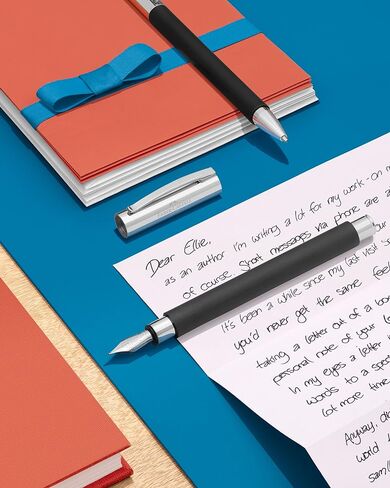 Dear Ellie,
I'm writing a lot for my work - on m
as an author
of course. Short messages via phone are a
It's been a while since my last visit s
you'd never get the same feel
taking a letter out of a bo
personal note of your lo
In my eyes a letter
words to a spec
lot more time
Anyway,
world
sam